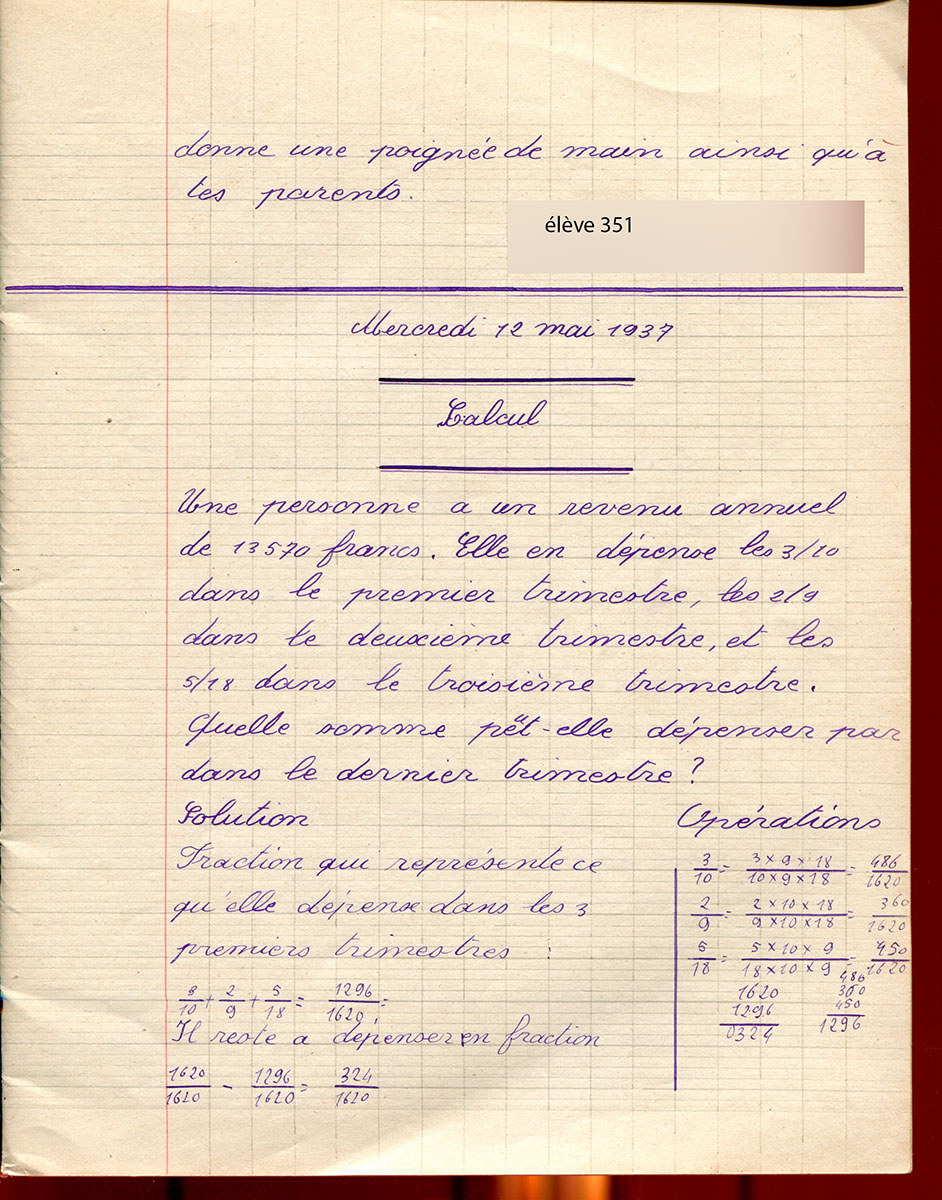 donne une poignée de main ainsi qu'à
tes parents.
élève 351
Mercredi 12 mai 1937
Calcul
Une personne a un revenu annuel
de 13570 francs. Elle en dépense les 3/10
dans le premier trimestre, les 2/9
dans le deuxième trimestre, et les
5/18 dans le troisième trimestre.
Quelle somme pët-elle dépenser par
dans le dernier trimestre ?
Solution
Fraction qui représente ce
qu'elle dépense dans les 3
premiers trimestres :
3/10 + 2/9 + 5/18 = 1296/1620 =
Il reste a dépenser en fraction
1620/1620 - 1296/1620 = 324/1620
Opérations
3/10 = 3 × 9 × 18/10 × 9 × 18 = 486/1620
2/9 = 2 × 10 × 18/9 × 10 × 18 = 360/1620
5/18 = 5 × 10 × 9/18 × 10 × 9 = 450/1620
1620
1296
0324
486
360
450
1296